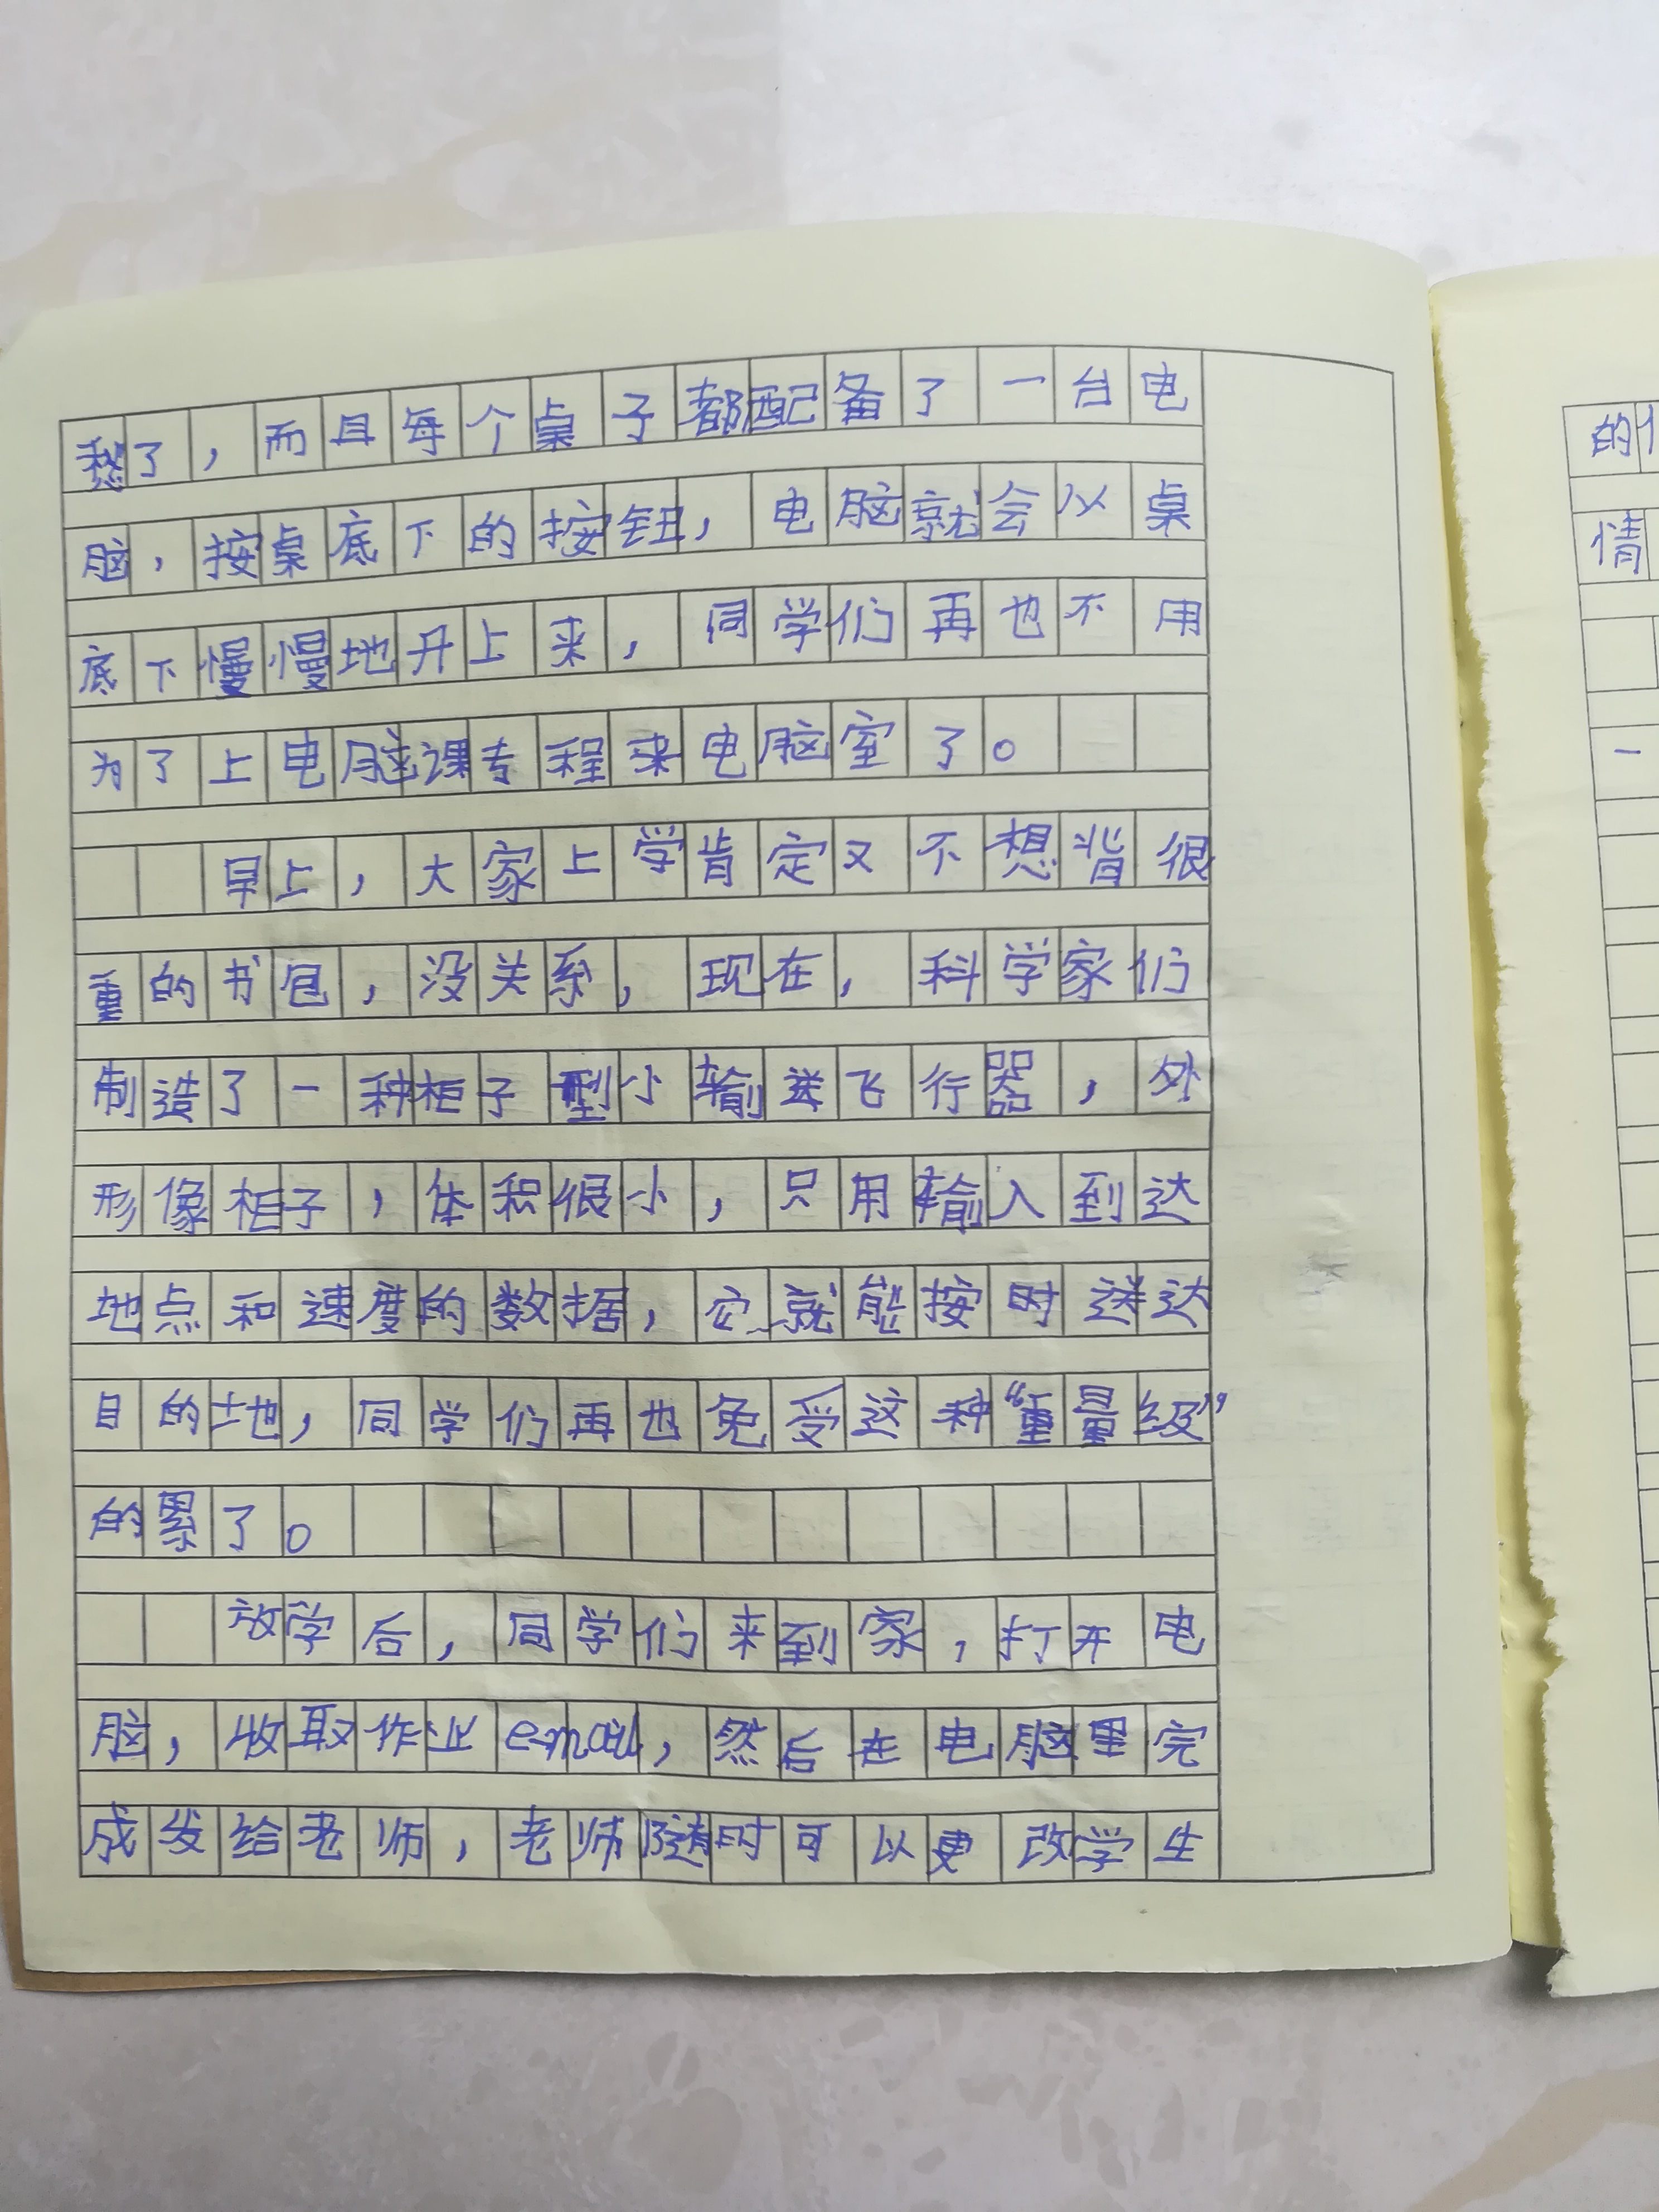 愁了，而且每个桌子都配备了一台电
脑，按桌底下的按钮，电脑就会以桌
底下慢慢地升上来，同学们再也不用
为了上电脑课专程来电脑室了。
早上，大家上学肯定又不想背很
重的书包，没关系，现在，科学家们
制造了一种柜子型小输送飞行器，外
形像柜子，体积很小，只用输入到达
地点和速度的数据，它就能按时送达
目的地，同学们再也免受这种“重量级”
的累了。
放学后，同学们来到家，打开电
脑，收取作业e-mail，然后在电脑里完
成发给老师，老师随时可以更改学生
的
情
一